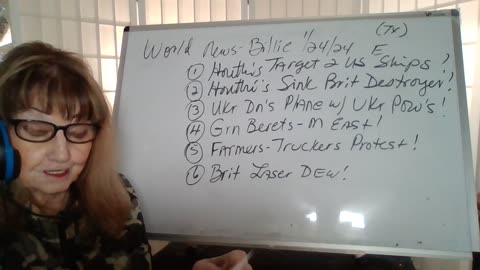 (Tx)
World News-Billie 1/24/24 E
① Houthi's Target 2 US Ships!
② Houthi's Sink Brit Destroyer!
③ Ukr Dn's Plane w/ Ukr Pow's!
④ Grn Berets-M East!
⑤ Farmers-Truckers Protest!
⑥ Brit Laser DEW!